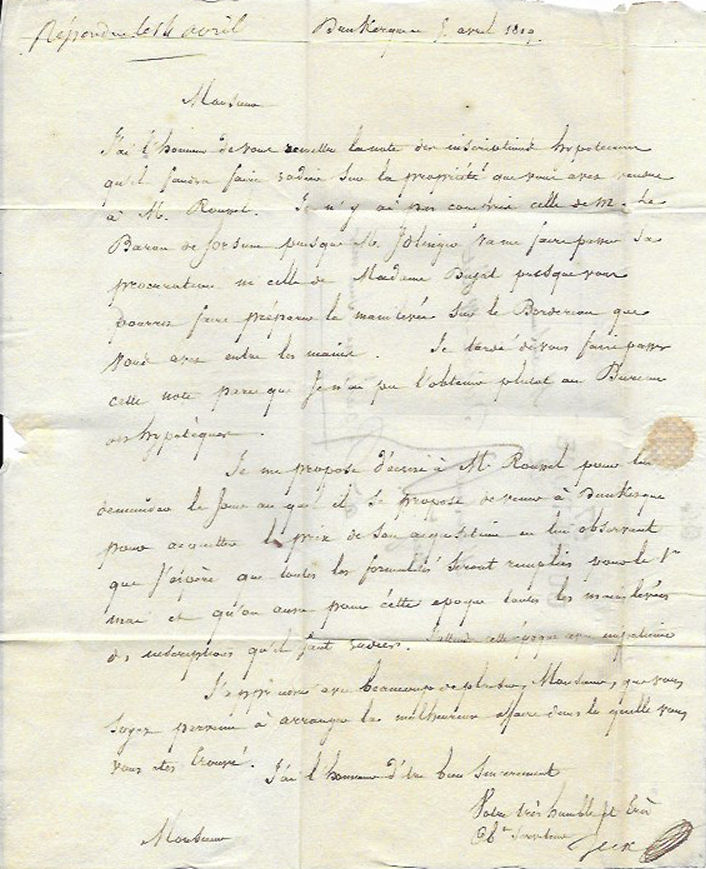 Répondu le 14 avril
Dunkerque 5 avril 1819.
Monsieur
J'ai l'honneur de vous remettre la note des inscriptions hypotecaires
qu'il faudra faire radier sur la propriété que vous avez vendue
à M. Rouxel. Je n'y ai pas compris celle de M. Le
Baron de puisque M. va me faire passer sa
procuration ni celle de Madame puisque vous
pourrez faire préparer la mainlevée sur le Bordereau que
vous avez entre les mains. Je tarde de vous faire passer
cette note parce que je n'ai pu l'obtenir plutot au Bureau
des hypotèques.
Je me propose d'écrire à M. Rouxel pour lui
demander le jour au quel il se propose de venir à Dunkerque
pour acquitter le prix de son acquisition en lui observant
que j'espère que toutes les formalités seront remplies vers le 1er
mai et qu'on aura pour cette epoque toutes les mainlevées
des inscriptions qu'il faut radier. J'attends cette époque avec impatience
J'apprendrai avec beaucoup de plaisir, Monsieur, que vous
soyez parvenu à arranger la malheureuse affaire dans la quelle vous
vous etes trouvé.
J'ai l'honneur d'être bien sincerement
Votre très humble et très
Obt. Serviteur
Monsieur